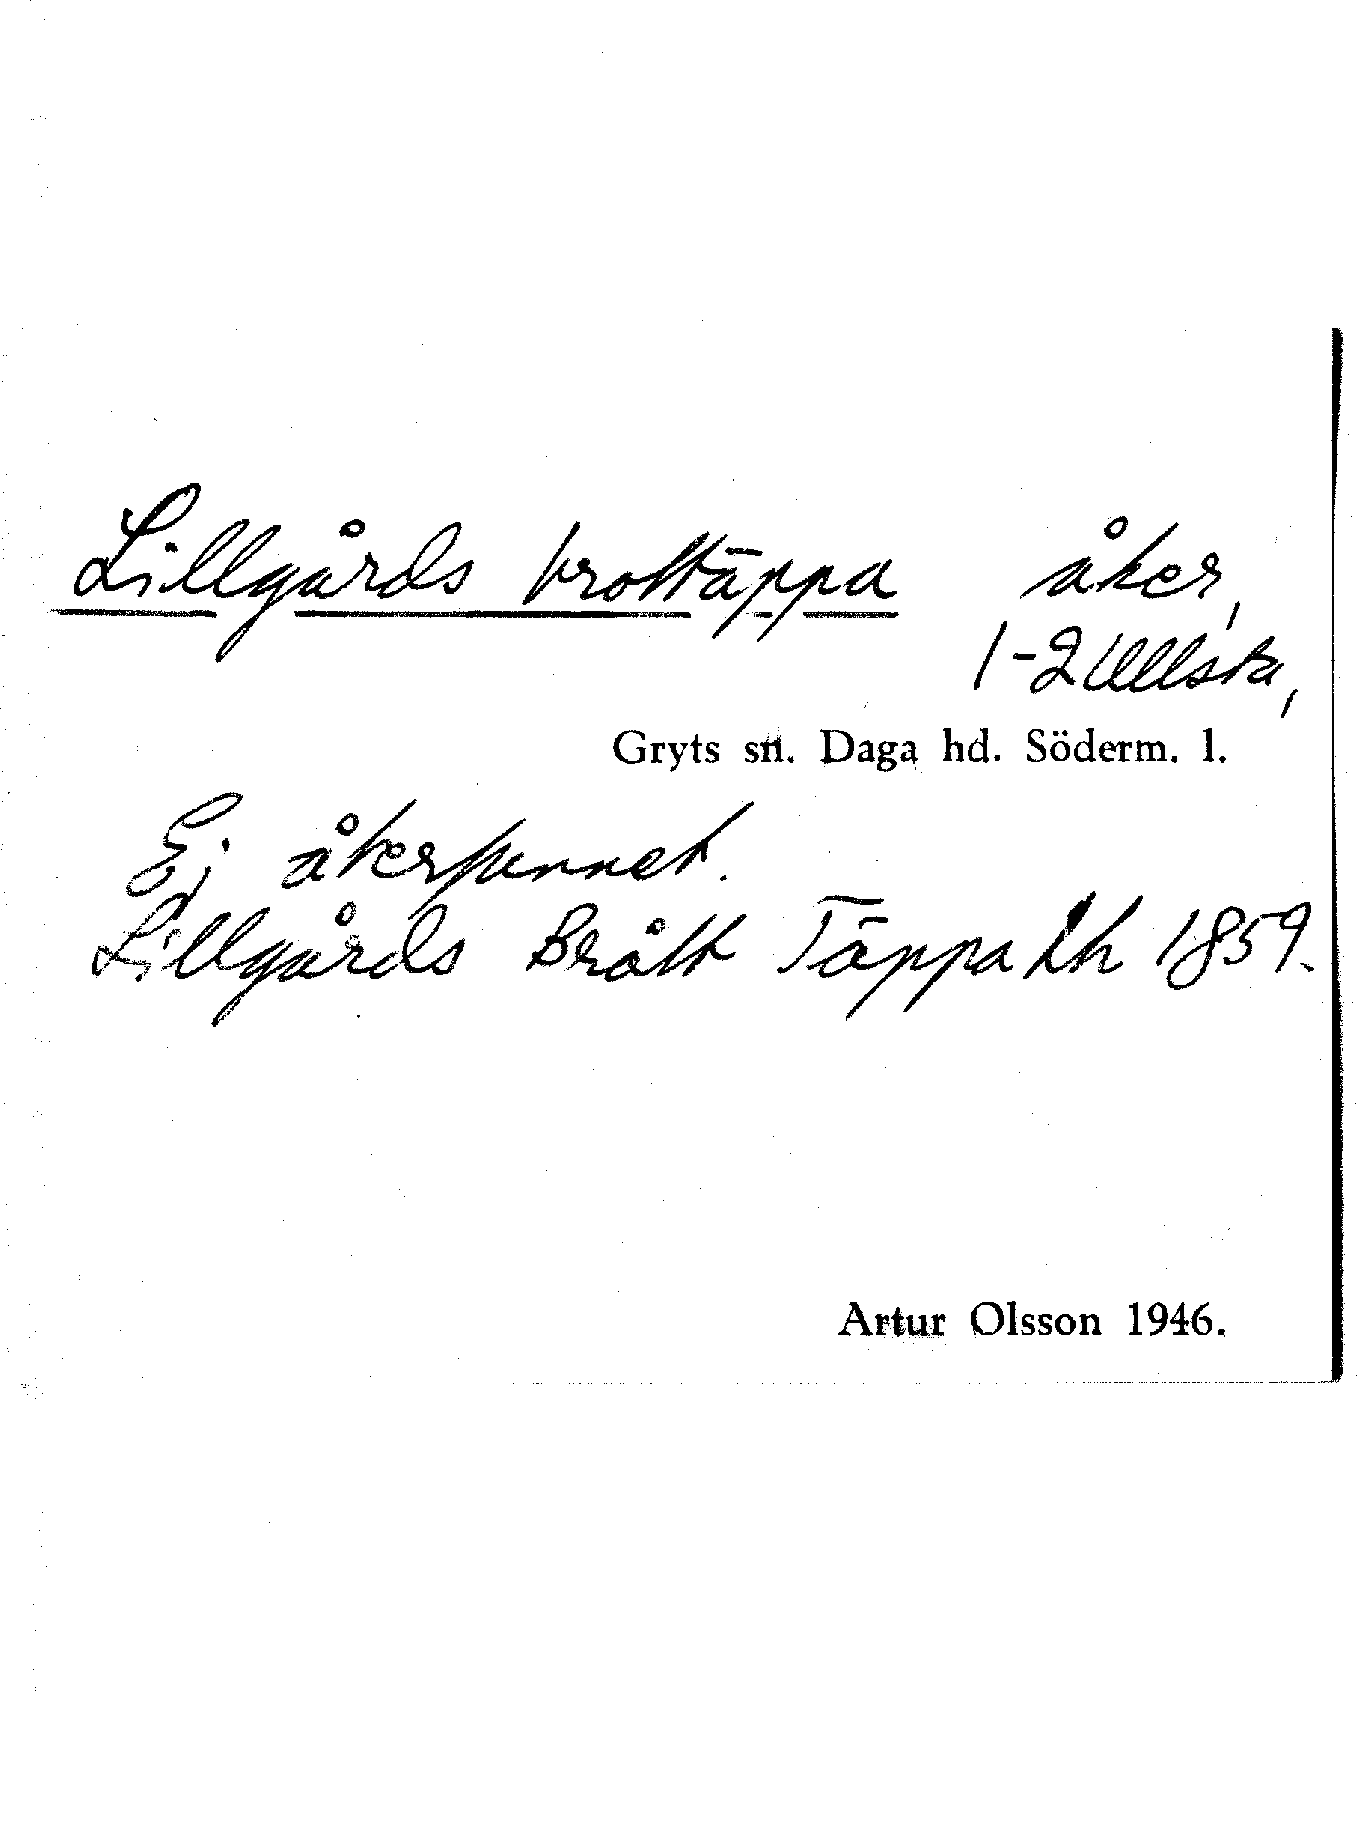 Lillgårds brottäppa åker,
1-2 Ullsta,
Gryts sn. Daga hd. Söderm. l.
Ej återfunnet.
Lillgårds Brått Täppa Lh 1859.
Artur Olsson 1946.